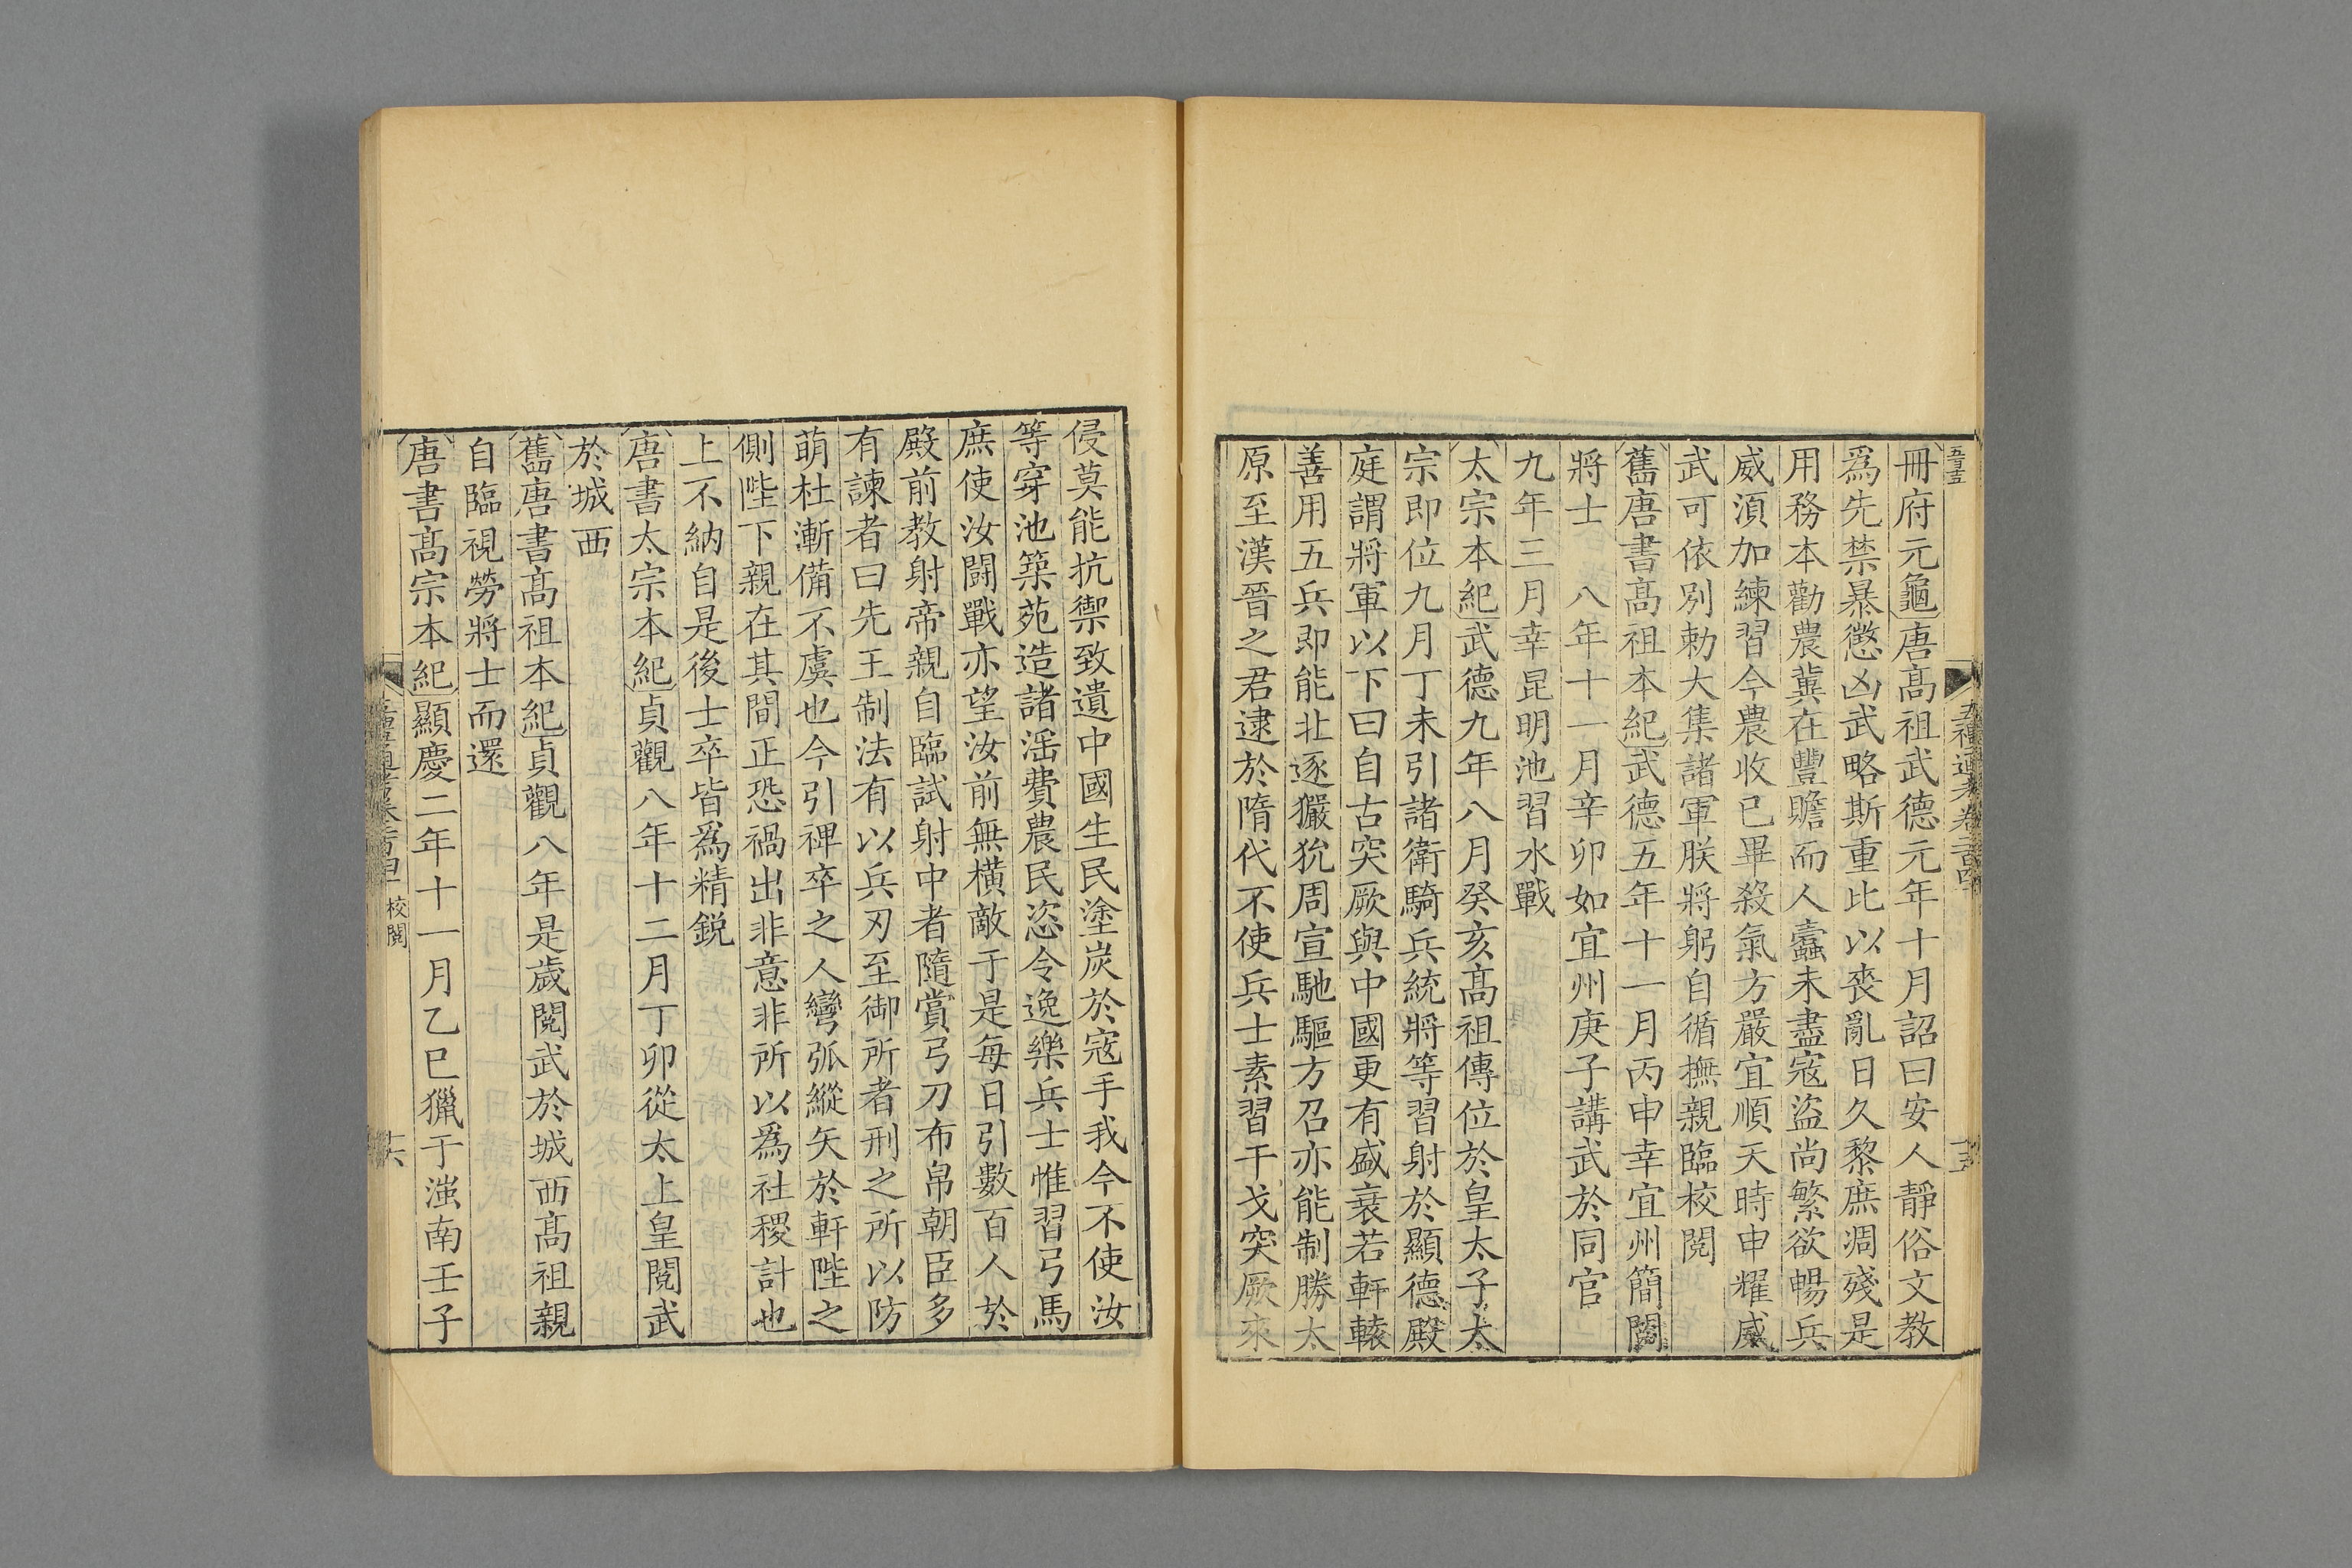 冊府元龜唐髙祖武德元年十月詔曰安人靜俗文教
爲先禁暴懲凶武略斯重比以喪亂日久黎庶凋殘是
用務本勸農冀在豐贍而人蠹未盡寇盜尚繁欲暢兵
威湏加練習今農收已畢殺氣方嚴宜順天時申耀威
武可依別勅大集諸軍朕將躬自循撫親臨校閱
舊唐書髙祖本紀武德五年十一月丙申幸宜州簡閱
將士　八年十一月辛卯如宜州庚子講武於同官
九年三月幸昆明池習水戰
太宗本紀武德九年八月癸亥髙祖傳位於皇太子太
宗即位九月丁未引諸衛騎兵統將等習射於顯德殿
庭謂將軍以下曰自古突厥與中國更有盛衰若軒轅
善用五兵即能北逐玁狁周宣馳驅方召亦能制勝太
原至漢晉之君逮於隋代不使兵士素習干戈突厥來
侵莫能抗禦致遺中國生民塗炭於寇手我今不使汝
等穿池築苑造諸滛費農民恣令逸樂兵士惟習弓馬
庶使汝鬭戰亦望汝前無橫敵于是每日引數百人於
殿前教射帝親自臨試射中者隨賞弓刀布帛朝臣多
有諫者曰先王制法有以兵刃至御所者刑之所以防
萌杜漸備不虞也今引裨卒之人彎弧縱矢於軒陛之
側陛下親在其間正恐禍出非意非所以爲社稷計也
上不納自是後士卒皆爲精鋭
唐書太宗本紀貞觀八年十二月丁卯從太上皇閱武
於城西
舊唐書髙祖本紀貞觀八年是歲閱武於城西髙祖親
自臨視勞將士而還
唐書髙宗本紀顯慶二年十一月乙巳獵于滍南壬子
校閱